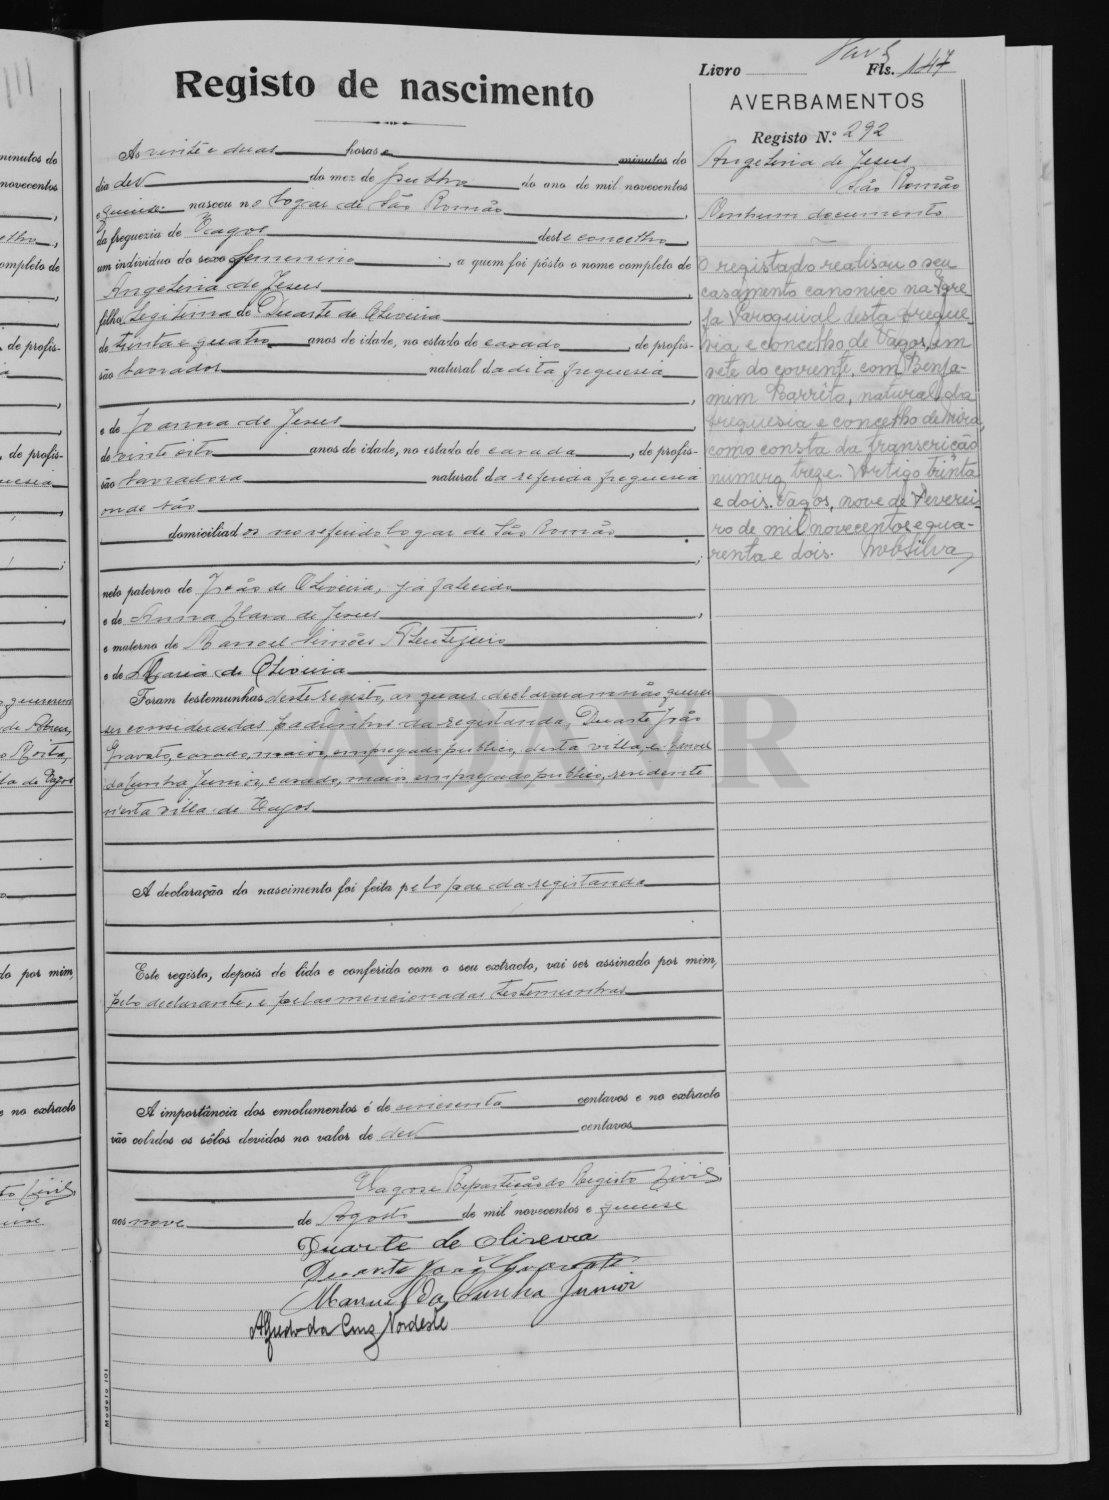 Livro Fls. 147
Registo de nascimento
AVERBAMENTOS
Registo N.º 292
Angelina de Jesus
São Romão
Nenhum documento
O registado realisou o seu
casamento canonico na Egre-
ja Paroquial desta fregue-
sia e concelho de Vagos, em
sete do corrente, com Benja-
mim Barrito, natural da
freguesia e concelho de Mira,
como consta da transcrição
numero treze. Artigo trinta
e dois. Vagos, nove de Feverei-
ro de mil novecentos e qua-
renta e dois.
Ás vinte e duas horas e minutos do
dia dez do mez de Julho do ano de mil novecentos
e quinze nasceu no logar de São Romão,
da freguezia de Vagos deste concelho,
um individuo do sexo femenino, a quem foi pôsto o nome completo de
Angelina de Jesus,
filha legitima de Duarte de Oliveira,
de trinta e quatro anos de idade, no estado de casado, de profis-
são lavrador natural da dita freguesia
,
e de Joanna de Jesus,
de vinte oito anos de idade, no estado de casada, de profis-
são lavradora natural da referida freguesia
onde são
domiciliados no referido logar de São Romão
;
neto paterno de João de Oliveira, já falecido
e de Anna Clara de Jesus,
e materno de Manoel Simões
e de Maria de Oliveira
Foram testemunhas deste registo, as quaes declararam não querer
ser consideradas padrinhos da registanda, Duarte João
Gravato, casado, maior, empregado publico, desta villa, e Manoel
da Cunha Junior, casado, maior, empregado publico, residente
n'esta villa de Vagos
A declaração do nascimento foi feita pelo pae da registanda
Este registo, depois de lido e conferido com o seu extracto, vai ser assinado por mim,
pelo declarante, e pelas mencionadas testemunhas
A importância dos emolumentos é de centavos e no extracto
vão colados os sêlos devidos no valor de dez centavos
Vagos e Repartição do Registo Civil
aos nove de Agosto de mil novecentos e quinze
Duarte de Oliveira
Duarte João Gravato
Manuel da Cunha Junior
Alfredo da Cruz Nordeste
Modelo 101
ADAVR
minutos do
novecentos
ompleto de
, de profis-
, de profis-
do por mim,
e no extracto